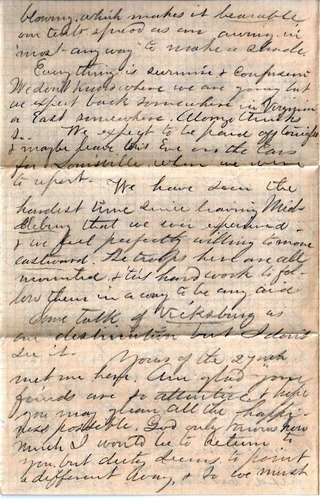 blowing, which makes it bearable
our tents spread as an awning in
"most any way" to make a shade.
Everything is surmise & confusion
We dont know where we are going but
we expect back somewhere in Virginia
or East somewhere. Alonzo thinks
so. We expect to be paid off tonight
& maybe leave this Eve on the Cars
for Louisville, where we were
to report.
We have seen the
hardest time since leaving Mid
dleburg that we ever experienced
& we feel perfectly willing to move
eastward. The troops here are all
mounted & it is hard work to fol
low them in a way to be any aid
Some talk of Vicksburg as
our destination but I don't
see it.
Yours of the 27
met me here. Am glad your
friends are so attentive & hope
you may glean all the happi
ness possible. God only knows how
much I would like to return to
you, but duty seems to point
a different way, & so we must